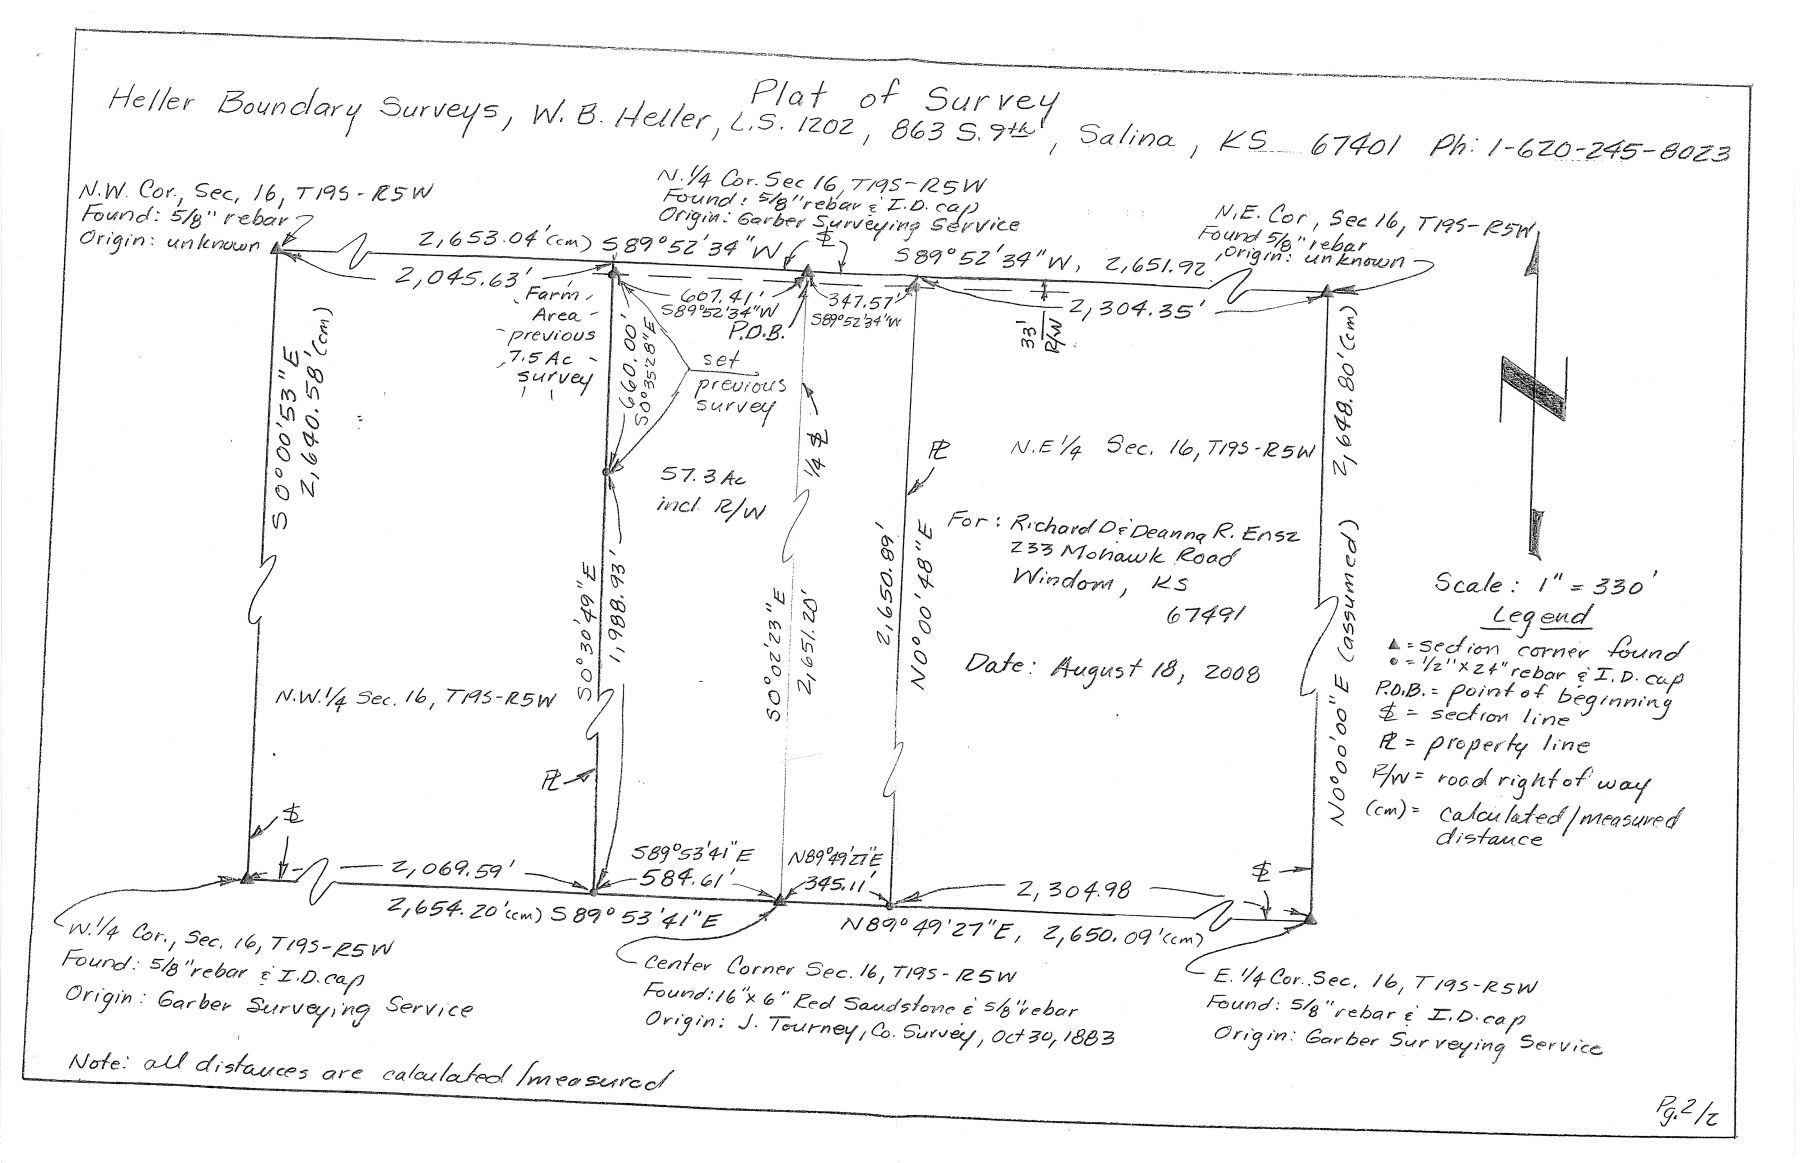 Plat of Survey
Heller Boundary Surveys, W. B. Heller, L.S. 1202, 863 S. 9th, Salina, KS 67401 Ph: 1-620-245-8023
N.W. Cor, Sec, 16, T19S-R5W
Found: 5/8" rebar
Origin: unknown
N. 1/4 Cor. Sec 16, T19S-R5W
Found: 5/8" rebar & I.D. cap
Origin: Garber Surveying Service
N.E. Cor, Sec 16, T19S-R5W
Found 5/8" rebar
Origin: unknown
2,653.04'(cm) S89°52'34"W
S89°52'34"W, 2,651.92
2,045.63'
607.41'
S89°52'34"W
P.O.B.
347.57'
S89°52'34"W
2,304.35'
33'
R/W
Farm
Area
previous
7.5 Ac
survey
660.00'
S0°35'28"E
set
previous
survey
S0°00'53"E
2,640.58'(cm)
2,648.80'(cm)
1/4 SL
PL
N.E 1/4 Sec. 16, T19S-R5W
57.3 Ac
incl. R/W
For: Richard D & Deanna R. Ensz
233 Mohawk Road
Windom, KS
67491
Date: August 18, 2008
S0°30'49"E
1,988.93'
S0°02'23"E
2,651.20'
2,650.89'
N0°00'48"E
N0°00'00"E (assumed)
Scale: 1" = 330'
Legend
▲ = section corner found
● = 1/2" x 24" rebar & I.D. cap
P.O.B. = point of beginning
SL = section line
PL = property line
R/W = road right of way
(cm) = calculated/measured
distance
N.W. 1/4 Sec. 16, T19S-R5W
PL
SL
SL
2,069.59'
S89°53'41"E
584.61'
N89°49'27"E
345.11'
2,304.98
2,654.20'(cm) S89°53'41"E
N89°49'27"E, 2,650.09'(cm)
W. 1/4 Cor., Sec. 16, T19S-R5W
Found: 5/8" rebar & I.D. cap
Origin: Garber Surveying Service
Center Corner Sec. 16, T19S-R5W
Found: 16" x 6" Red Sandstone & 5/8" rebar
Origin: J. Tourney, Co. Survey, Oct 30, 1883
E. 1/4 Cor. Sec. 16, T19S-R5W
Found: 5/8" rebar & I.D. cap
Origin: Garber Surveying Service
Note: all distances are calculated/measured
Pg. 2/2